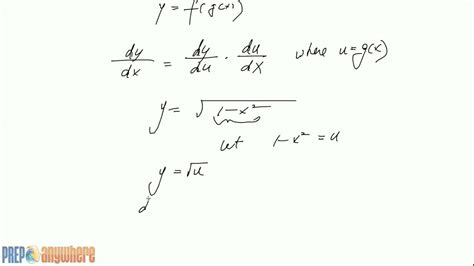 y = f(g(x))
dy/dx = dy/du · du/dx where u = g(x)
y = √(1-x²)
let 1-x² = u
y = √u
d
PREP anywhere